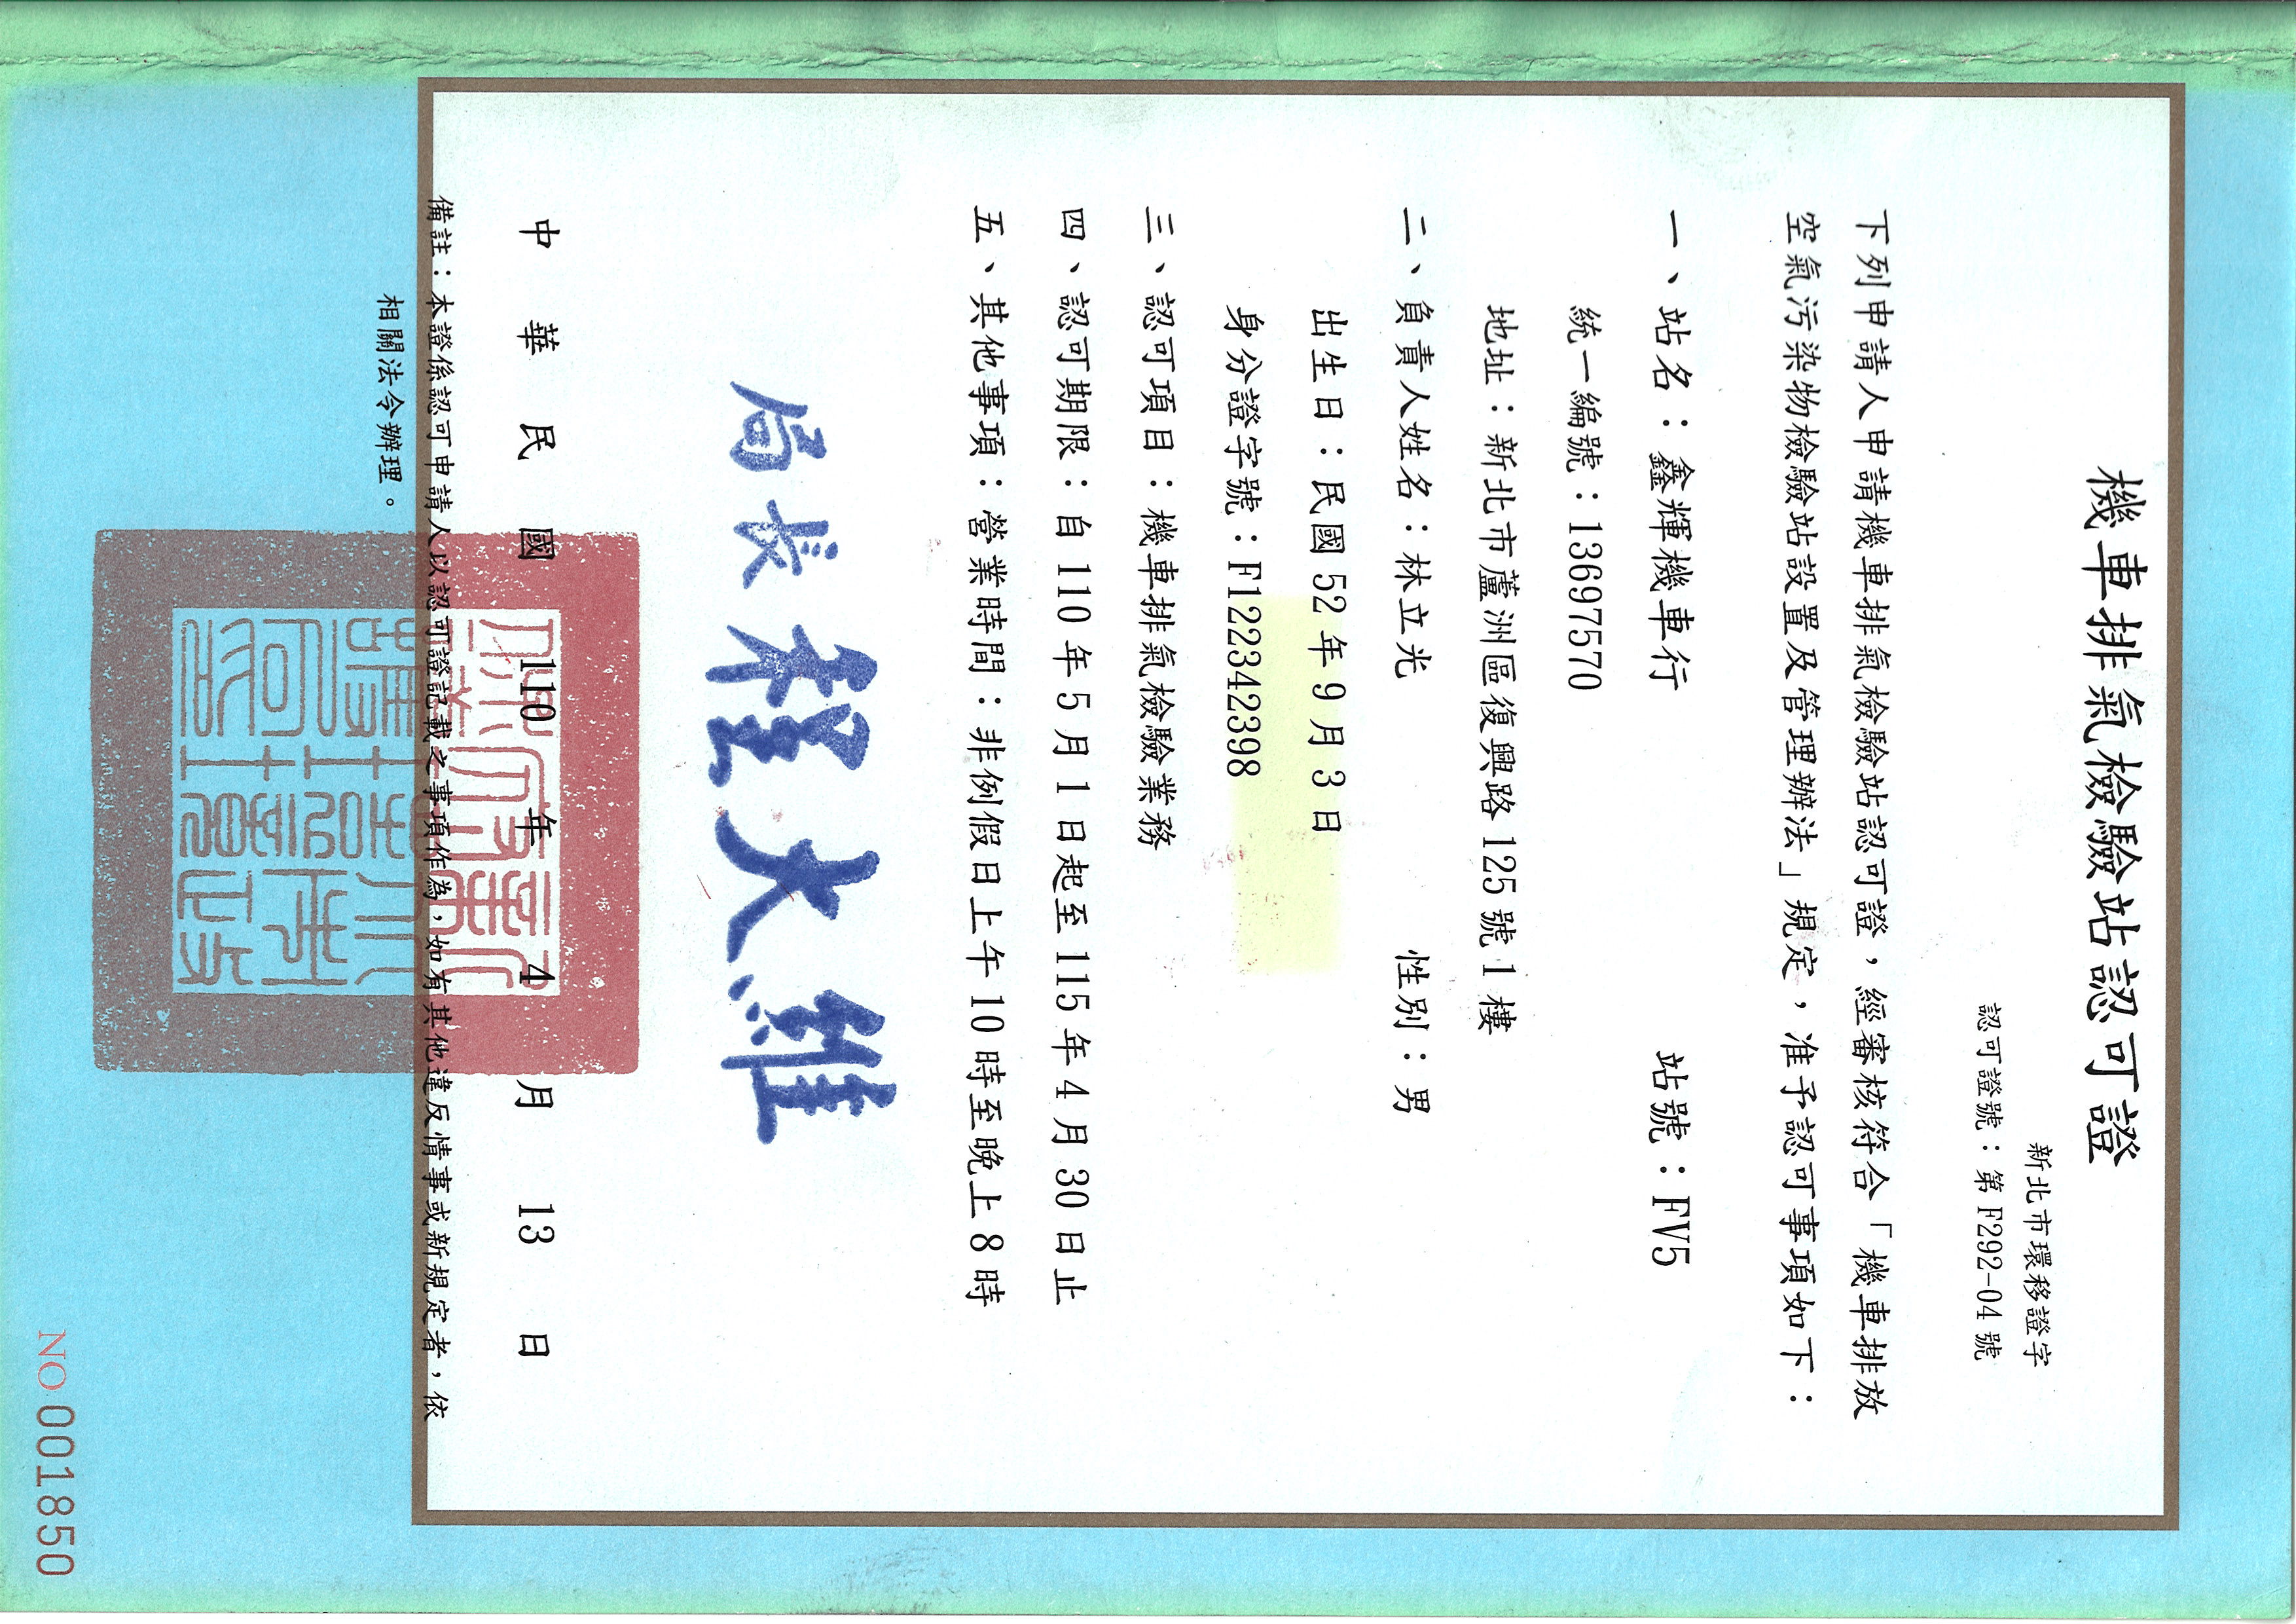 機車排氣檢驗站認可證
新北市環移證字
認可證號：第 F292-04 號
下列申請人申請機車排氣檢驗站認可證，經審核符合「機車排放
空氣污染物檢驗站設置及管理辦法」規定，准予認可事項如下：
一、站名：鑫輝機車行 站號：FV5
統一編號：13697570
地址：新北市蘆洲區復興路 125 號 1 樓
二、負責人姓名：林立光 性別：男
出生日：民國 52 年 9 月 3 日
身分證字號：F122342398
三、認可項目：機車排氣檢驗業務
四、認可期限：自 110 年 5 月 1 日起至 115 年 4 月 30 日止
五、其他事項：營業時間：非例假日上午 10 時至晚上 8 時
局長 程大維
中華民國 110 年 4 月 13 日
備註：本證係認可申請人以認可證記載之事項作為，如有其他違反情事或新規定者，依
相關法令辦理。
NO 001850